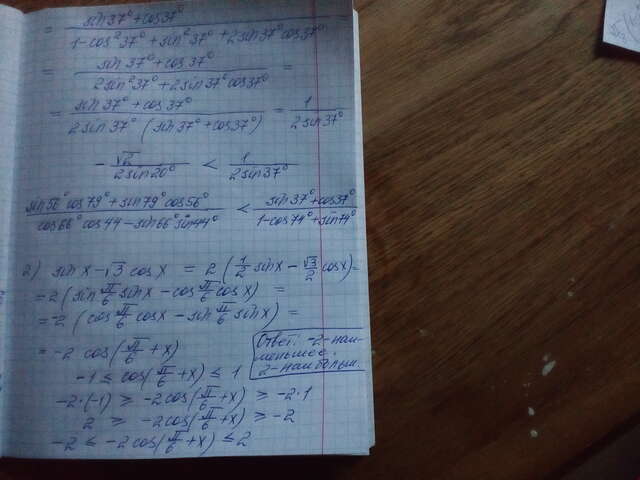 = sin37° + cos37° / 1-cos²37° + sin²37° + 2sin37°cos37° =
= sin37° + cos37° / 2sin²37° + 2sin37°cos37° =
= sin37° + cos37° / 2sin37° (sin37° + cos37°) = 1 / 2sin37°
- √2 / 2sin20° < 1 / 2sin37°
sin56°cos79° + sin79°cos56° / cos66°cos44 - sin66°sin44° < sin37° + cos37° / 1-cos74° + sin74°
2) sin x - √3 cos x = 2 (1/2 sin x - √3/2 cos x) =
= 2 (sin π/6 sin x - cos π/6 cos x) =
= -2 (cos π/6 cos x - sin π/6 sin x) =
= -2 cos(π/6 + x)
-1 ≤ cos(π/6 + x) ≤ 1
-2·(-1) ≥ -2cos(π/6 + x) ≥ -2·1
2 ≥ -2cos(π/6 + x) ≥ -2
-2 ≤ -2cos(π/6 + x) ≤ 2
Ответ: -2-наи-
меньшое.
2-наибольш.